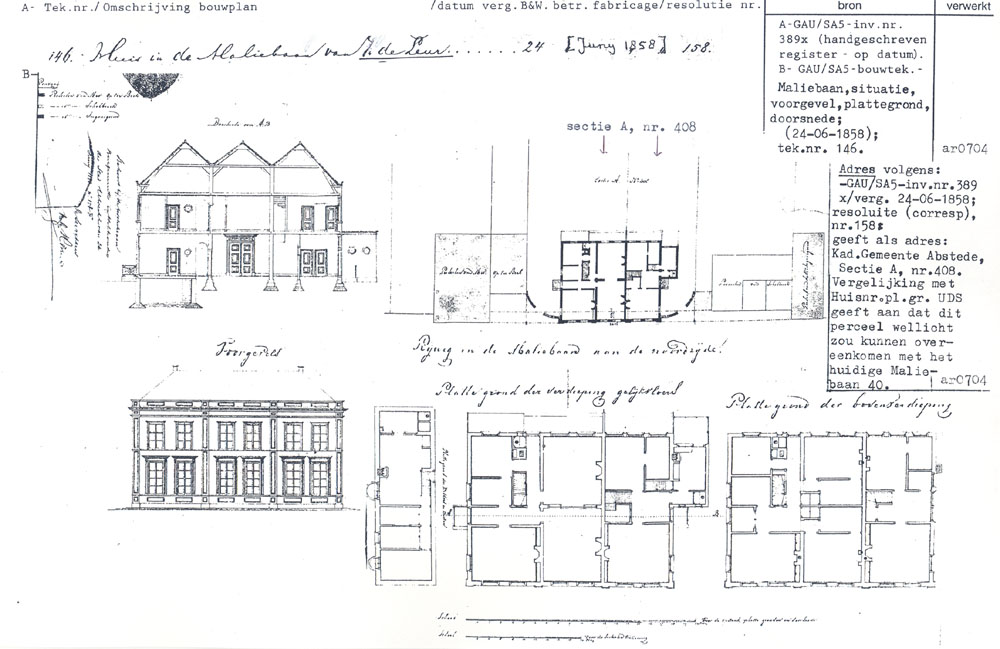 A- Tek.nr./Omschrijving bouwplan
/datum verg.B&W. betr. fabricage/resolutie nr.
bron
verwerkt
146. Huis in de Maliebaan van J. de Leur....... 24 [Juny 1858] 158.
A-GAU/SA5-inv.nr.
389x (handgeschreven
register - op datum).
B- GAU/SA5-bouwtek.-
Maliebaan,situatie,
voorgevel,plattegrond,
doorsnede;
(24-06-1858);
tek.nr. 146.
ar0704
Adres volgens:
-GAU/SA5-inv.nr.389
x/verg. 24-06-1858;
resoluite (corresp),
nr.158:
geeft als adres:
Kad.Gemeente Abstede,
Sectie A, nr.408.
Vergelijking met
Huisnr.pl.gr. UDS
geeft aan dat dit
perceel wellicht
zou kunnen over-
eenkomen met het
huidige Malie-
baan 40.
ar0704
B-
Doorsnede van A.B
sectie A, nr. 408
Voorgevel
Rijweg in de Maliebaan aan de noordzijde!
Platte grond der verdieping gelijkvloers
Platte grond der bovenverdieping
A
B
Schaal
Schaal